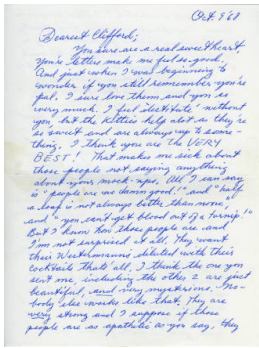 Oct 9 '68
Dearest Clifford;
You sure are a real sweetheart.
You're letters make me feel so good.
And just when I was beginning to
wonder if you still remember you're
pal. I sure love them and you so
very much. I feel destitute without
you, but the kitties help alot as they're
so sweet and are always up to some-
thing. I think you are the VERY
BEST! That makes me sick about
those people not saying anything
about your mock-ups. All I can say
is "people are no damn good!" and "half
a loaf is not always better than none,"
and "you can't get blood out of a turnip!"
But I know how those people are and
I'm not surprised at all. They want
their Westermanns diluted with their
cocktails thats' all. I think the one you
sent me, including the other 2 are just
beautiful, and very mysterious. No-
body else works like that. They are
very strong and I suppose if those
people are as apathetic as you say, they